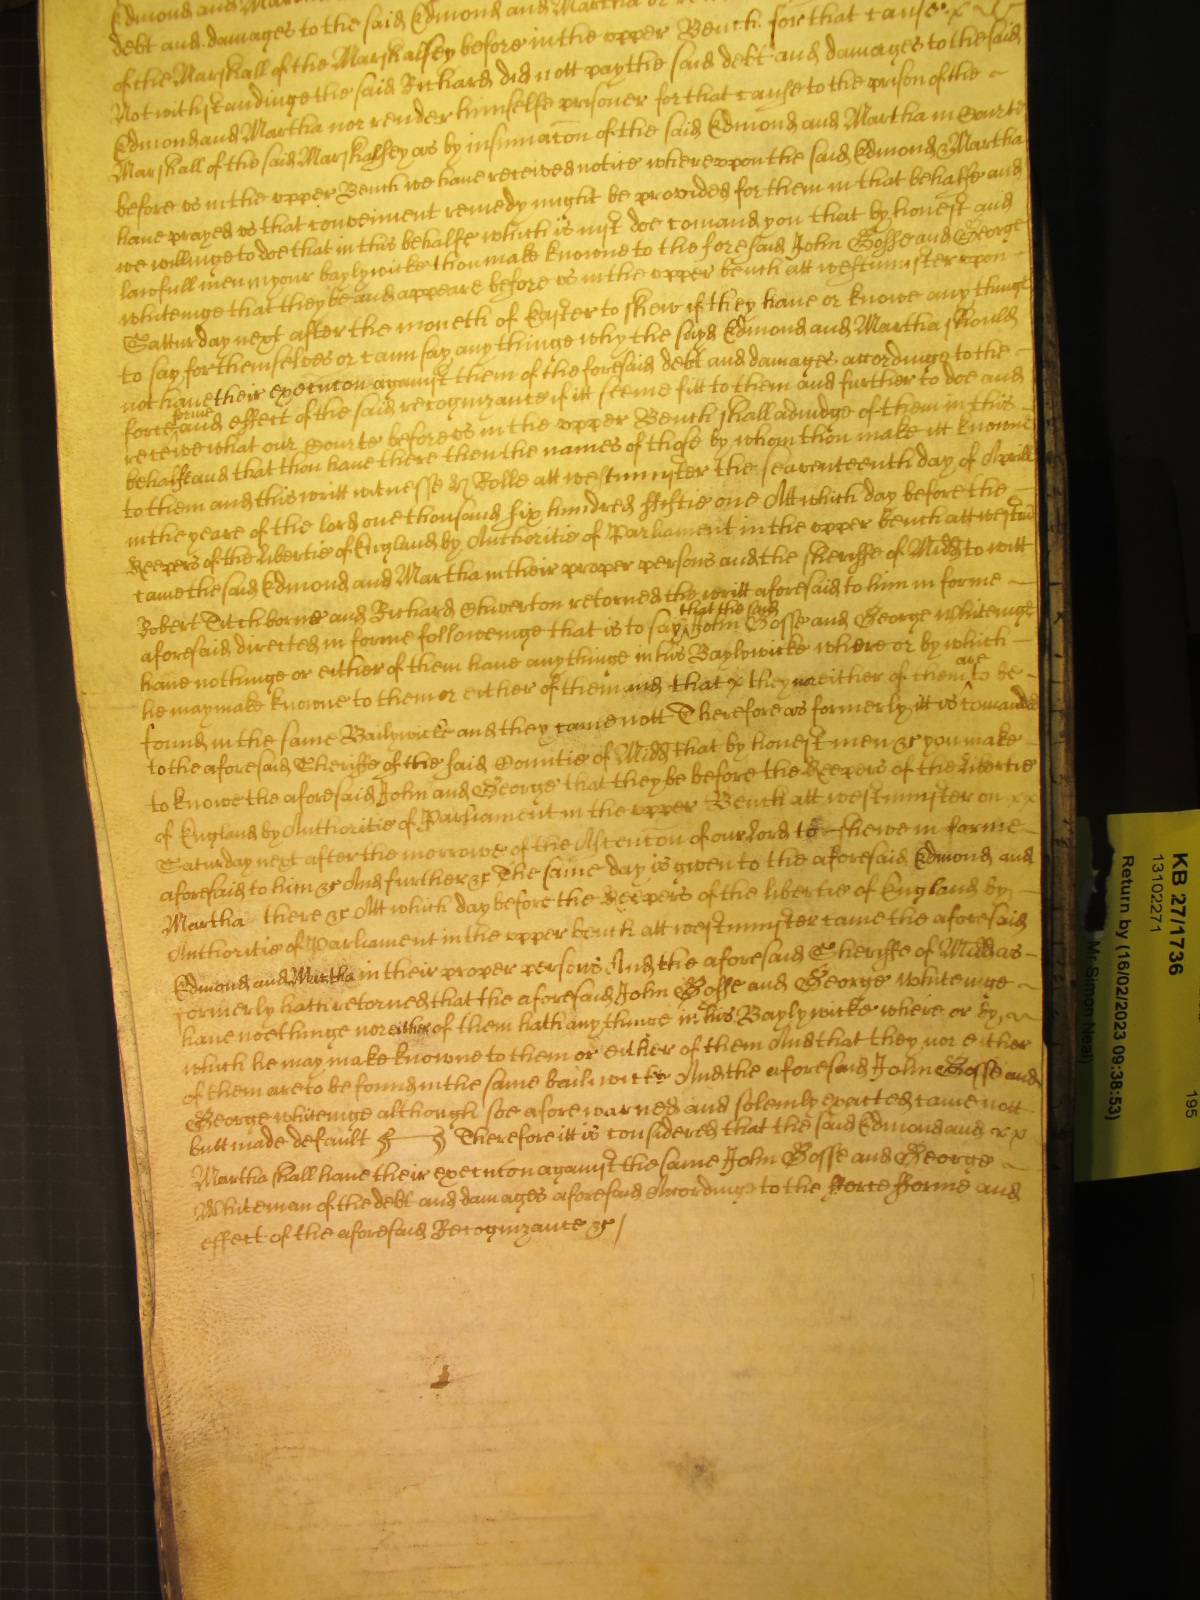 Edmond and Martha
debt and damages to the said Edmond and Martha or
of the Marshall of the Marshalsey before in the upper Bench for that cause
Notwithstandinge the said Richard did nott pay the said debt and damages to the said
Edmond and Martha nor render himselfe prisoner for that cause to the prison of the
Marshall of the said Marshalsey as by insinuacon of the said Edmond and Martha in Courte
before us in the upper Bench we have received notice whereuppon the said Edmond & Martha
have prayed us that conveinient remedy might be provided for them in that behalfe and
we willinge to doe that in this behalfe which is just doe comand you that by honest and
lawfull men in your baylywicke thou make knowne to the foresaid John Gosse and George
Whiteinge that they be and appeare before us in the upper bench att westminster upon
Satturday next after the moneth of Easter to shew if they have or knowe any thinge
to say for themselves or cann say any thinge why the sayd Edmond and Martha should
not have their execucon against them of the foresaid debt and damages accordinge to the
force forme and effect of the said recognizance if itt seeme fitt to them and further to doe and
receive what our Courte before us in the upper Bench shall adiudge of them in this
behalfe and that thou have there then the names of those by whom thou make itt knowne
to them and this writt witnesse H Rolle att westminster the seaventeenth day of Aprill
in the yeare of the lord one thousand six hundred fiftie one Att which day before the
Keepers of the libertie of England by Authoritie of Parliament in the upper bench att westm
came the said Edmond and Martha in their proper persons and the sheriffe of Midd to witt
Robert Titchborne and Richard Chiverton retorned the writt aforesaid to him in forme
aforesaid directed in forme followeinge that is to say that the said John Gosse and George Whiteinge
have nothinge or either of them have any thinge in his Baylywicke where or by which
he may make knowne to them or either of them and that x they nor either of them are to be
found in the same Bailywicke and they came nott Therefore as formerly itt is comanded
to the aforesaid Sheriffe of the said Countie of Midd that by honest men &c you make
to knowe the aforesaid John and George that they be before the Keepers of the libertie
of England by Authoritie of Parliament in the upper Bench att westminster on x x
Saturday next after the morrowe of the Ascencon of our Lord to shewe in forme
aforesaid to him &c And further &c The same day is given to the aforesaid Edmond and
Martha there &c Att which day before the Keepers of the libertie of England by
Authoritie of Parliament in the upper bench att westminster came the aforesaid
Edmond and Martha in their proper persons And the aforesaid Sheriffe of Midd as
formerly hath retorned that the aforesaid John Gosse and George Whiteinge
have noethinge nor either of them hath any thinge in his Baylywicke where or by
which he may make knowne to them or either of them And that they nor either
of them are to be found in the same bailiwicke And the aforesaid John Gosse and
George whiteinge although soe aforewarned and solemly exacted came nott
butt made default Therefore itt is considered that the said Edmond and x x
Martha shall have their execucon against the same John Gosse and George
Whiteman of the debt and damages aforesaid Accordinge to the fforce fforme and
effect of the aforesaid Recognizance &c
KB 27/1736
13102271
195
Return by (16/02/2023 09:38:53)
Mr Simon Neal